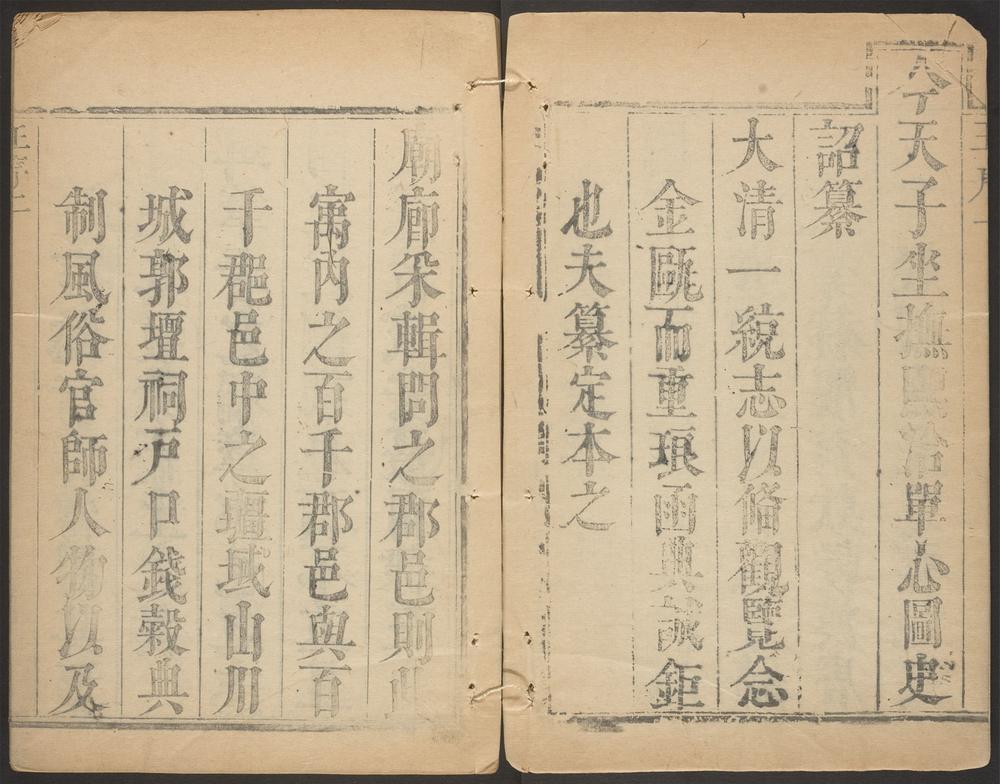 今天子坐撫熙洽單心圖史
詔纂
大清一統志以俻觀覽念
金甌而重琅函典誠鉅
也夫纂定本之
廟廊采輯問之郡邑則
寓内之百千郡邑與百
千郡邑中之疆域山川
城郭壇祠戸口錢穀典
制風俗官師人物以及